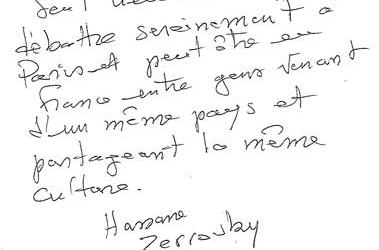 débattre sereinement à
Paris et peut être en
France entre gens venant
d'un même pays et
partageant la même
culture.
Hassane
Zerrouky